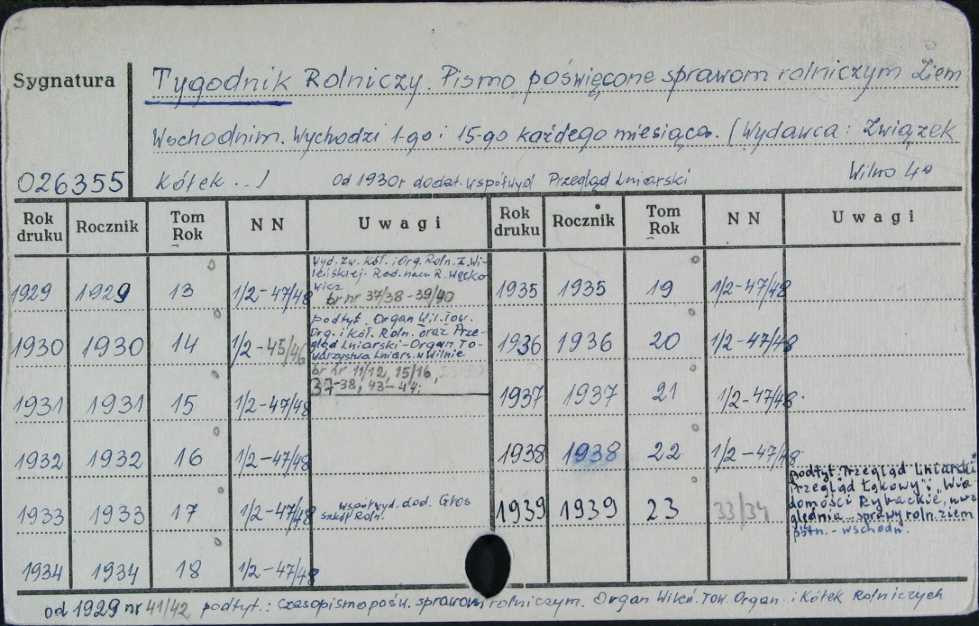 Sygnatura
Tygodnik Rolniczy. Pismo poświęcone sprawom rolniczym Ziem
Wschodnim. Wychodzi 1-go i 15-go każdego miesiąca. (Wydawca: Związek
026355 Kółek ..) Od 1930r dodat. współwyd Przegląd Lniarski Wilno 4°
Rok druku Rocznik Tom Rok NN Uwagi Rok druku Rocznik Tom Rok NN Uwagi
1929 1929 13 1/2-47/48
wyd. Zw. Kół. i Org. Roln. Z. Wi-
leńskiej. Red. nacz. R. Węcko-
wicz
br nr 37/38-39/40
1935 1935 19 1/2-47/48
1930 1930 14 1/2-45/46
podtyt. Organ Wil. Tow.
Org. i Kół. Roln. oraz Prze-
gląd Lniarski-Organ To-
warzystwa Lniars. w Wilnie
br nr 11/12, 15/16,
37-38, 43-44;
1936 1936 20 1/2-47/48
1931 1931 15 1/2-47/48 1937 1937 21 1/2-47/48.
1932 1932 16 1/2-47/48 1938 1938 22 1/2-47/48
1933 1933 17 1/2-47/48
współwyd. dod. Głos
Szkół Roln.
1939 1939 23 33/34
podtyt. Przegląd Lniarski
Przegląd Łąkowy; "Wia
domości Rybackie,
ględnia sprawy roln. ziem
półn.-wschodn.
1934 1934 18 1/2-47/48
od 1929 nr 41/42 podtyt.: Czasopismo pośw. sprawom rolniczym. Organ Wileń. Tow. Organ. i Kółek Rolniczych